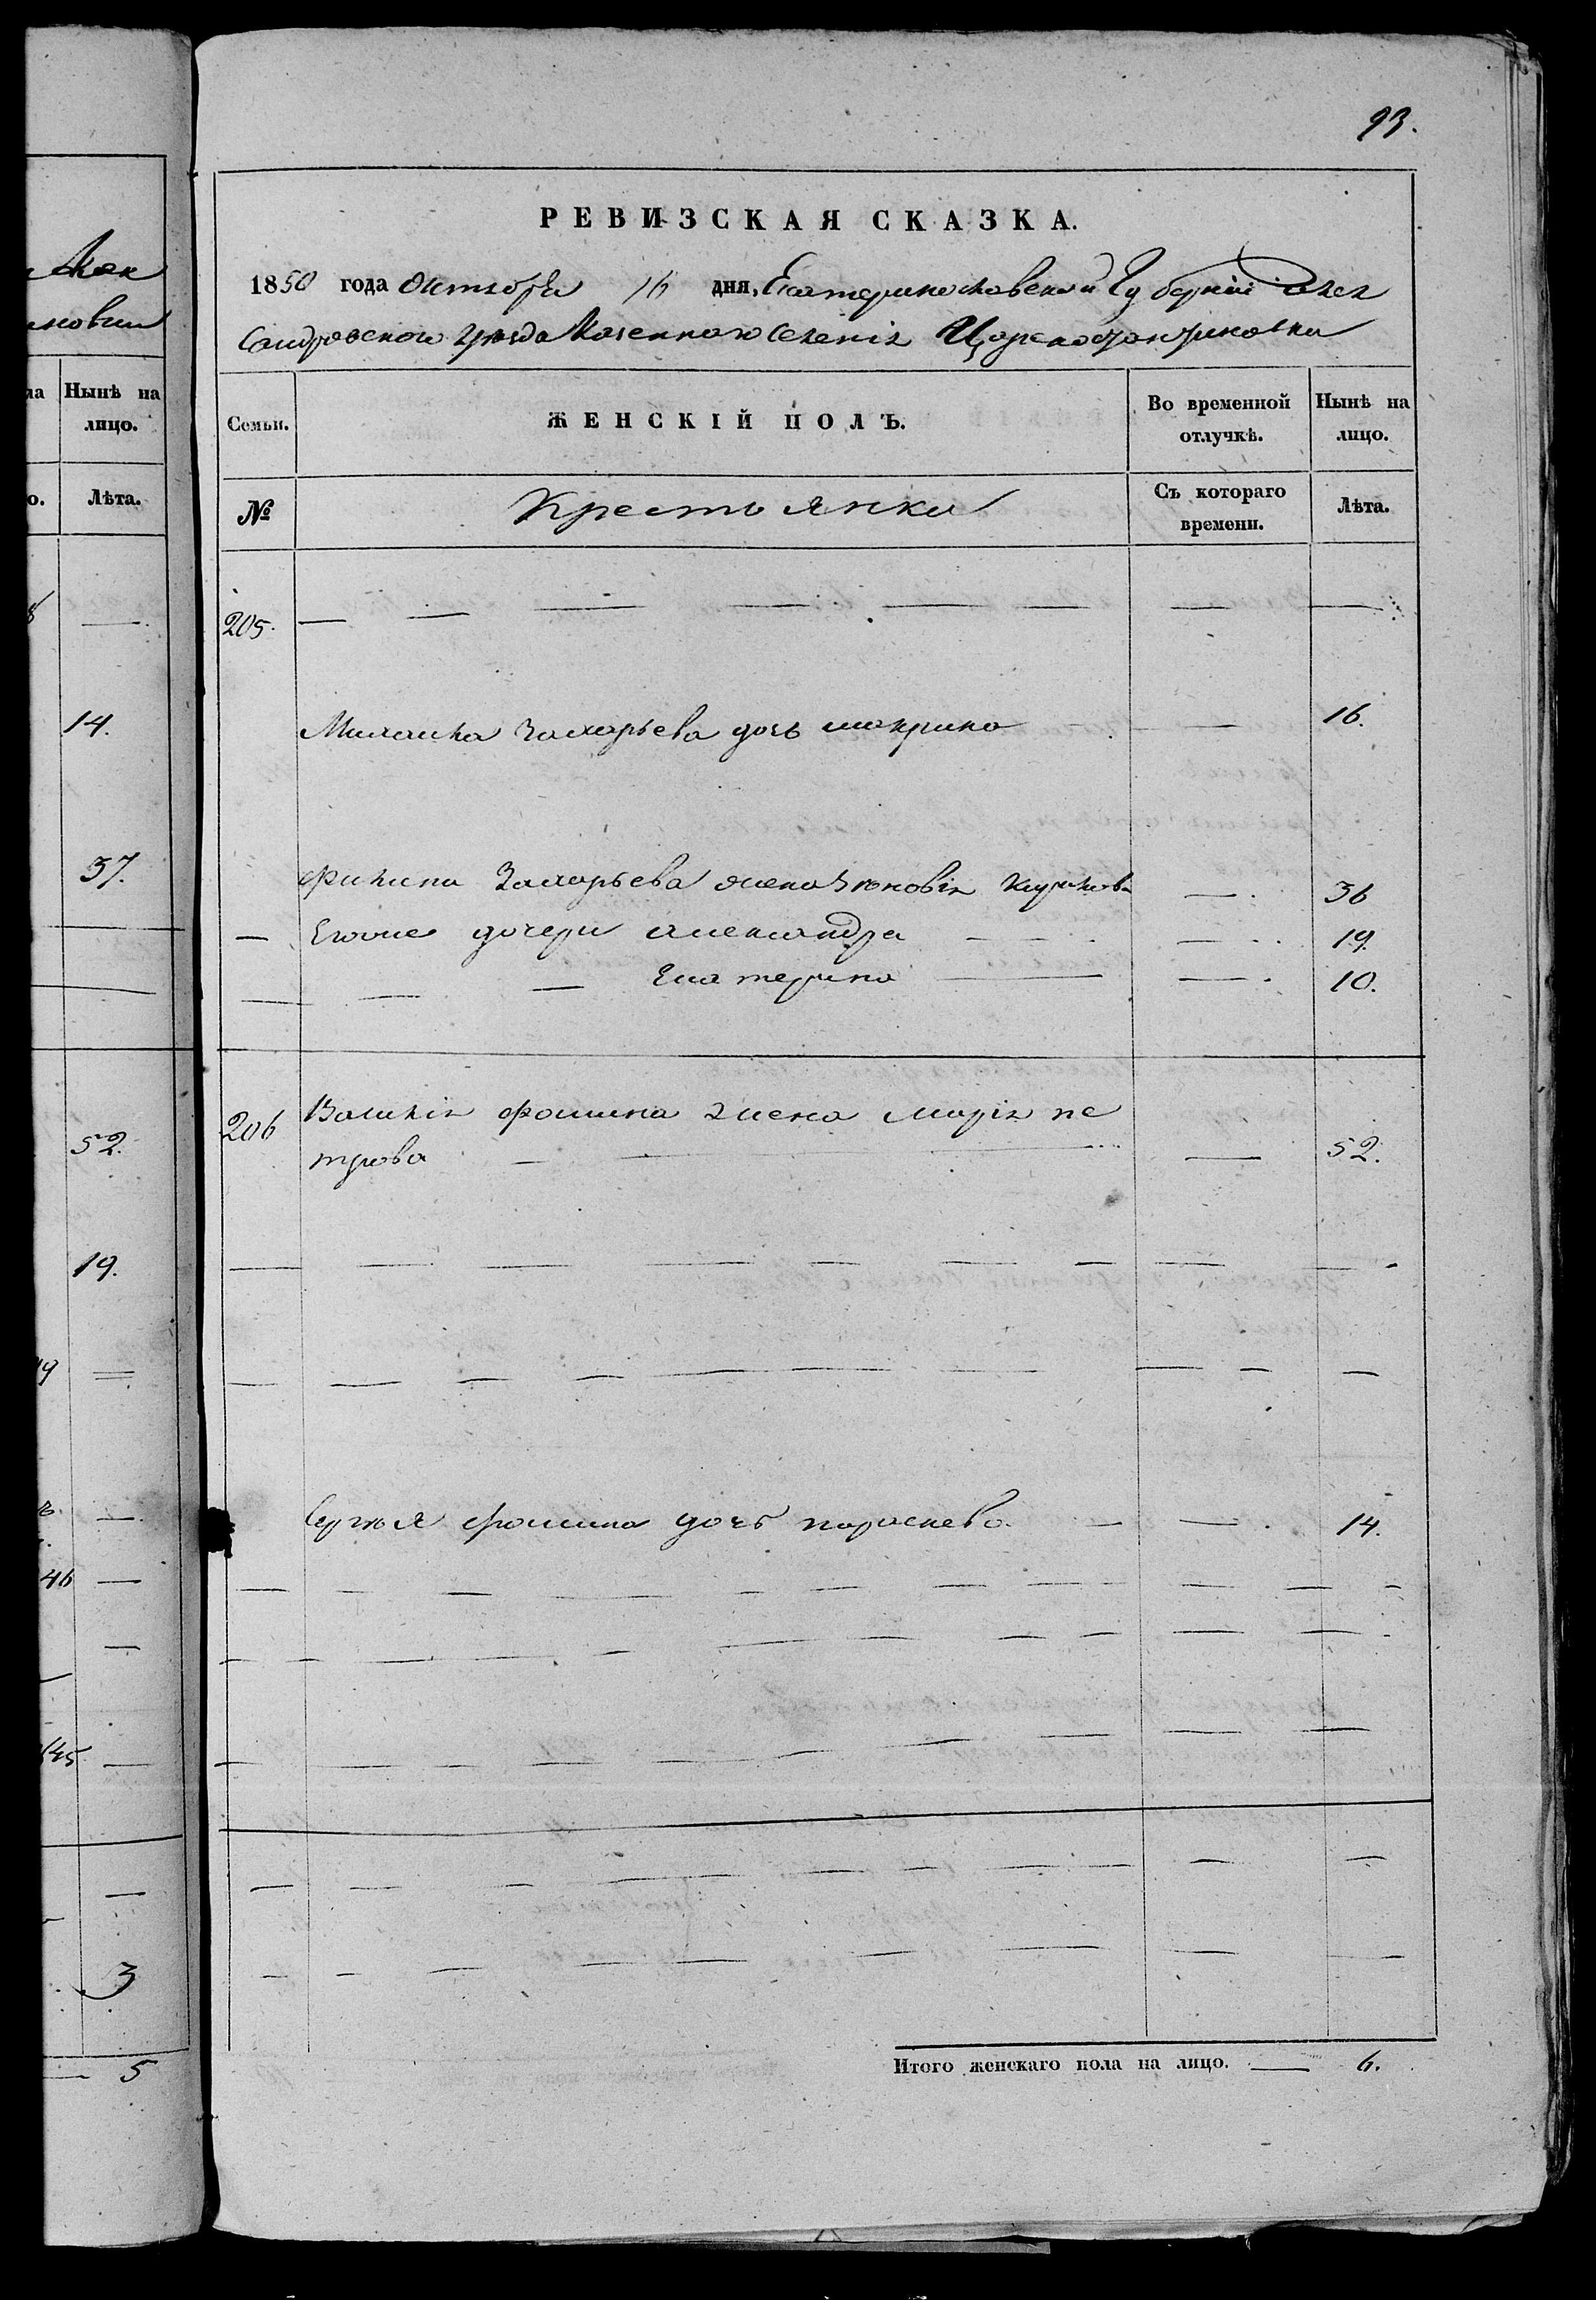 93.
РЕВИЗСКАЯ СКАЗКА.
1850 года Октября 16 дня, Екатеринославской Губерніи Алек
сандровского уезда Казенного Селенія Цареконстантиновки
Семьи.
ЖЕНСКІЙ ПОЛЪ.
Во временной отлучкѣ.
Нынѣ на лицо.
№
Крестьянки
Съ котораго времени.
Лѣта.
205.
Михаила Захарьева дочь макрина — 16.
Филипа Захарьева жена Зеновія — 36
— Егоже дочери александра — 19.
— Екатерина — 10.
206 Василія фомина жена марія пе
трова — 52.
Сергея фомина дочь параскева. — 14.
Итого женскаго пола на лицо. — 6.
Нынѣ на лицо.
Лѣта.
14.
37.
52.
19.
46
3
5